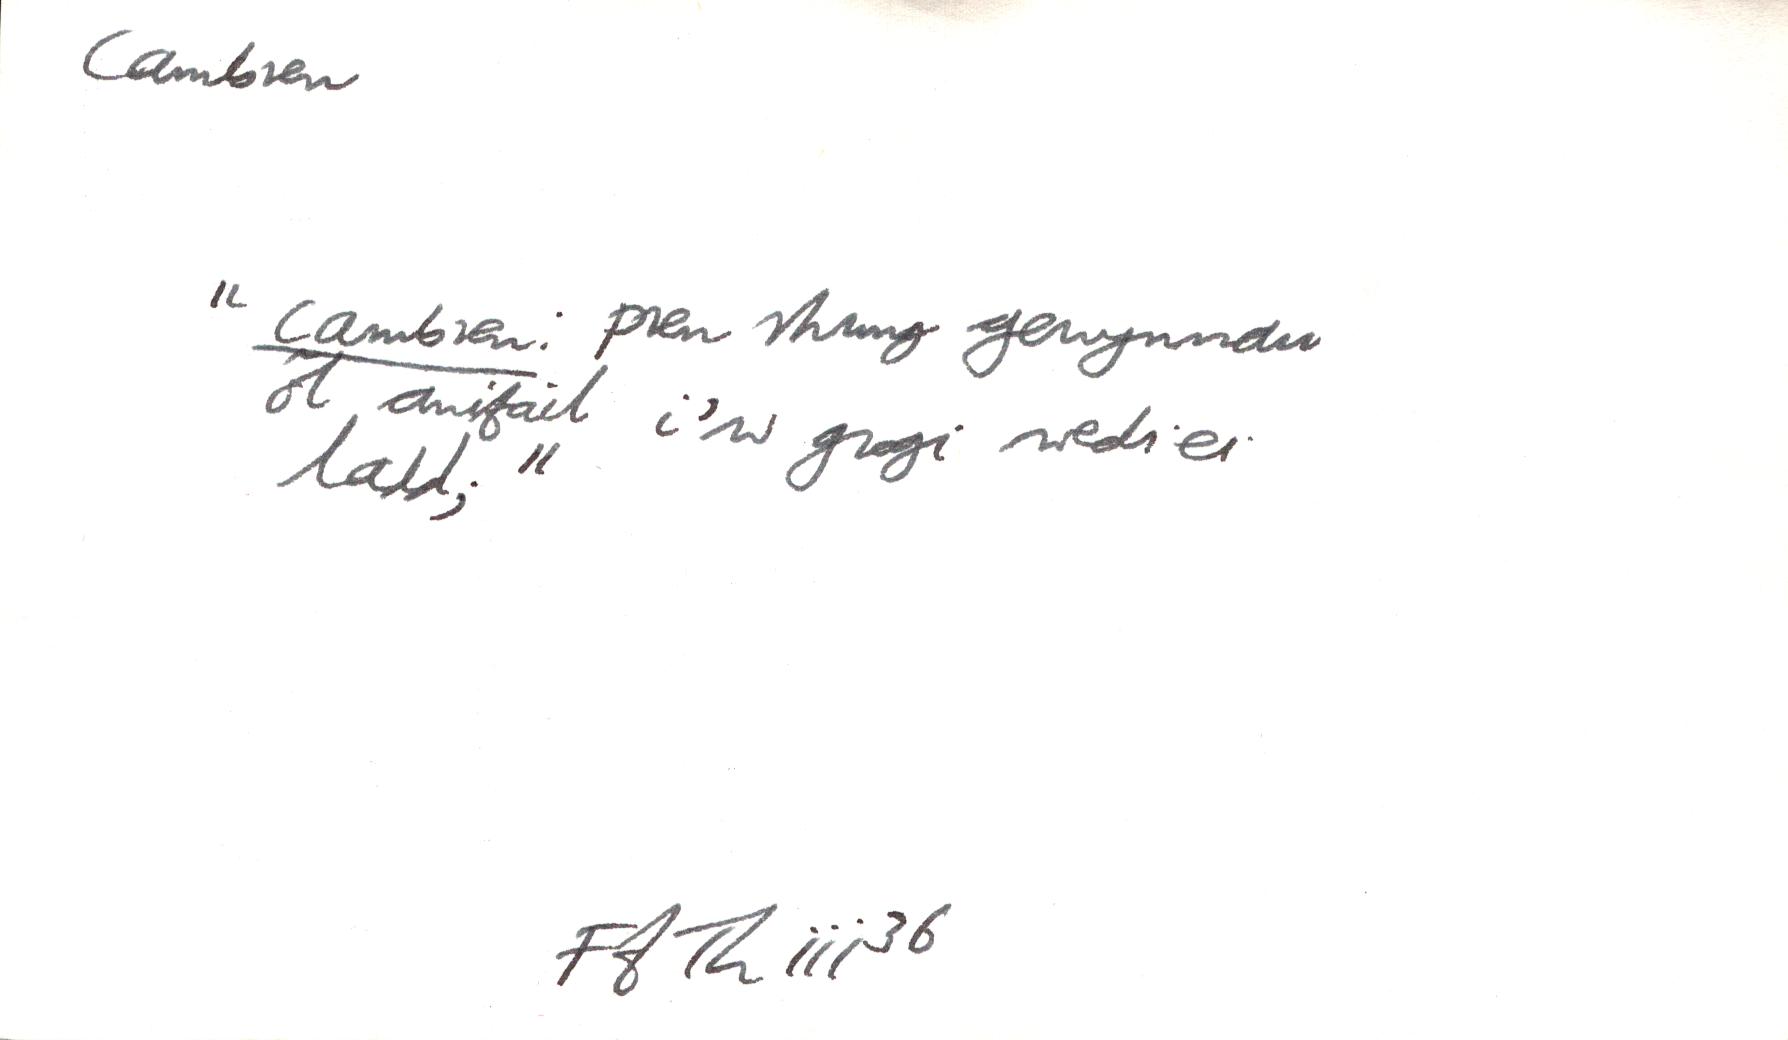 Cambren
"Cambren: pren rhwng gewynnau
ôl anifail i'w grogi wedi ei
ladd;"
Ff Th iii 36